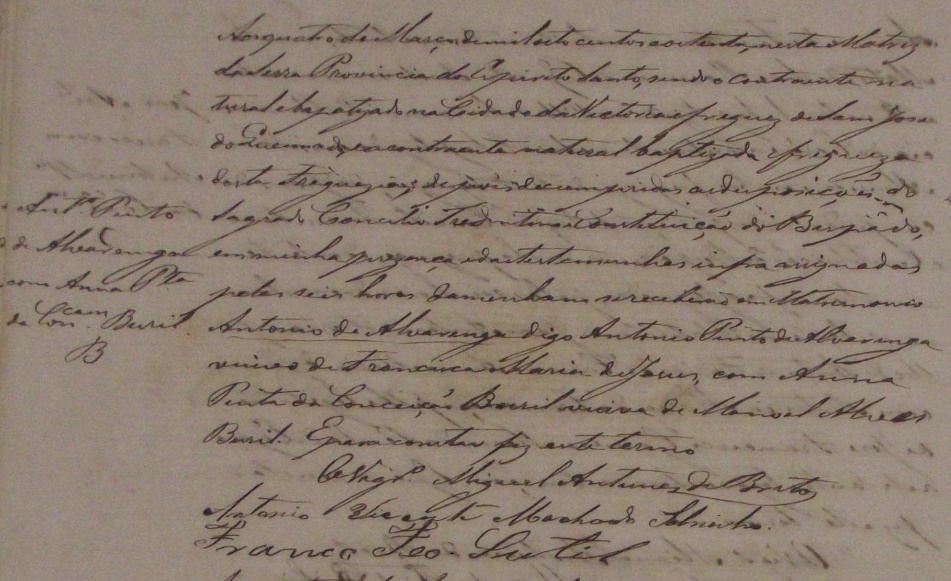 Aos quatro de Março de mil oito centos e oitenta, nesta Matriz
da Serra Provincia do Espirito Santo, sendo o contraente na
tural e baptizado na Cidade da Victoria e freguez de Sam Jose
do Queimado, e a contraente natural baptizada e fregueza
desta Freguezia; depois de cumpridas as disposições do
Sagrado Concilio Tredentino e Constituição do Bispado,
em minha prezença e das testemunhas infra assignadas
pelas seis horas da minham se receberão em Matrimonio
Antonio de Alvarenga digo Antonio Pinto de Alvarenga
viuvo de Francisca Maria de Jesus, com Anna
Pinta da Conceição Buril viuva de Manoel Alves
Buril. E para constar fiz este termo
O Vigr.º Miguel Antunes de Brito
Antonio Vicente Machado Sobrinho.
Franco Feo
Ant.º Pinto
de Alvarenga
com Anna Pta
da Con.cam Buril.
B